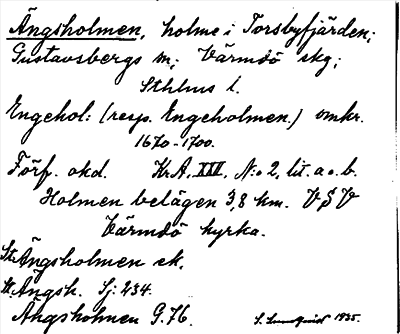 Ängsholmen, holme i Torsbyfjärden;
Gustavsbergs sn; Värmdö skg;
Sthlms l.
Engehol: (resp. Engeholmen.) omkr.
1670-1700.
Förf. okd. KrA, XIII, N:o 2, lit. a o. b.
Holmen belägen 3,8 km. VSV
Värmdö kyrka.
St. Ängsholmen ek.
St. Ängsh. Sj: 234.
Ängsholmen G.76. S. Lundqvist 1935.